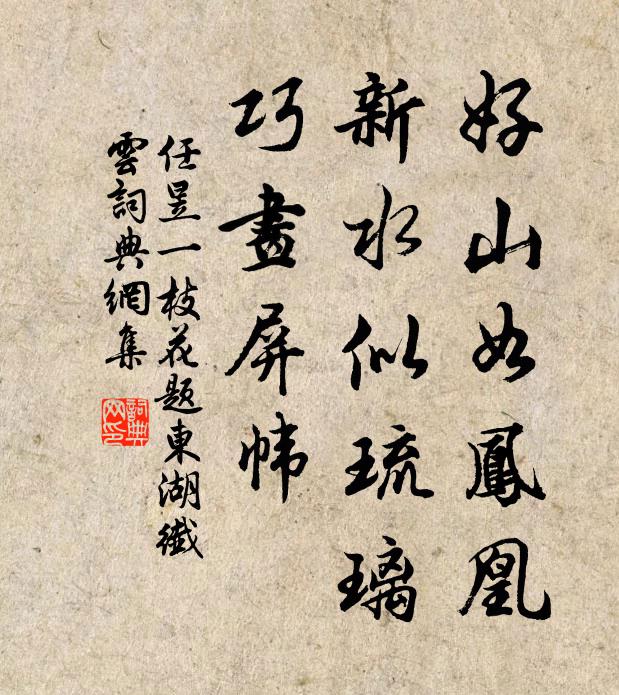 好山如鳳凰
新水似琉璃
巧畫屏幃
任昱一枝花題東湖纖
雲詞典網集
詞典
网印